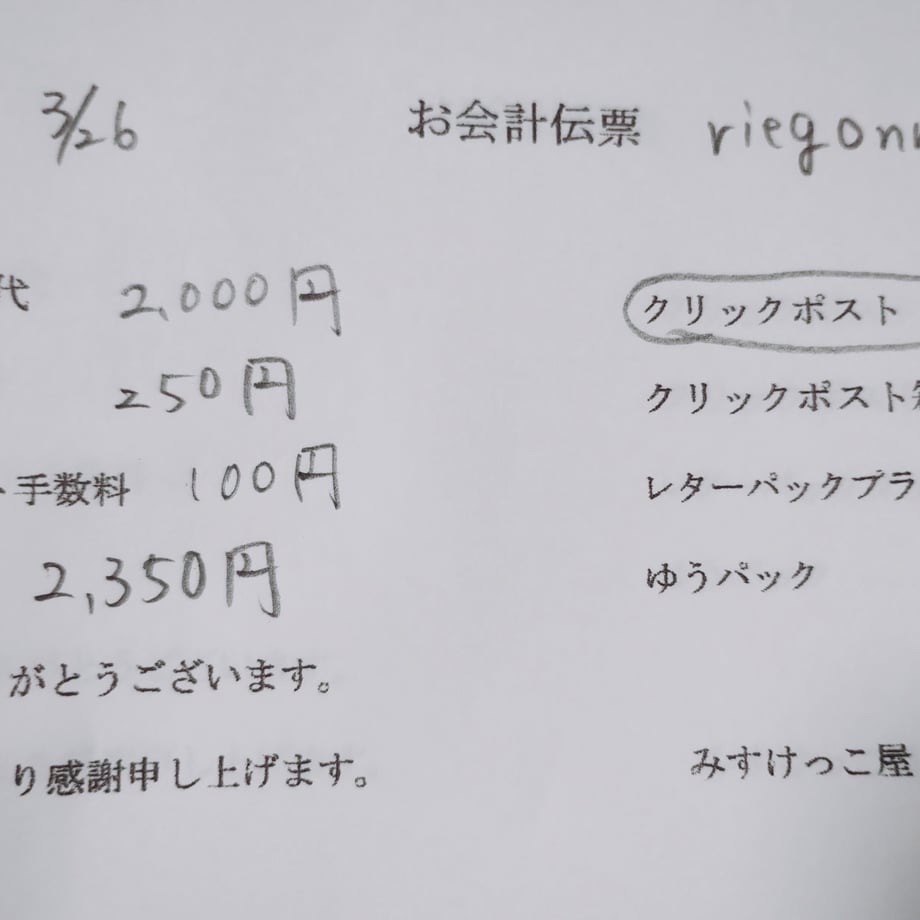 3/26 お会計伝票 riegon
代 2,000円 クリックポスト
250円 クリックポスト
手数料 100円 レターパックプラ
2,350円 ゆうパック
がとうございます。
り感謝申し上げます。 みすけっこ屋